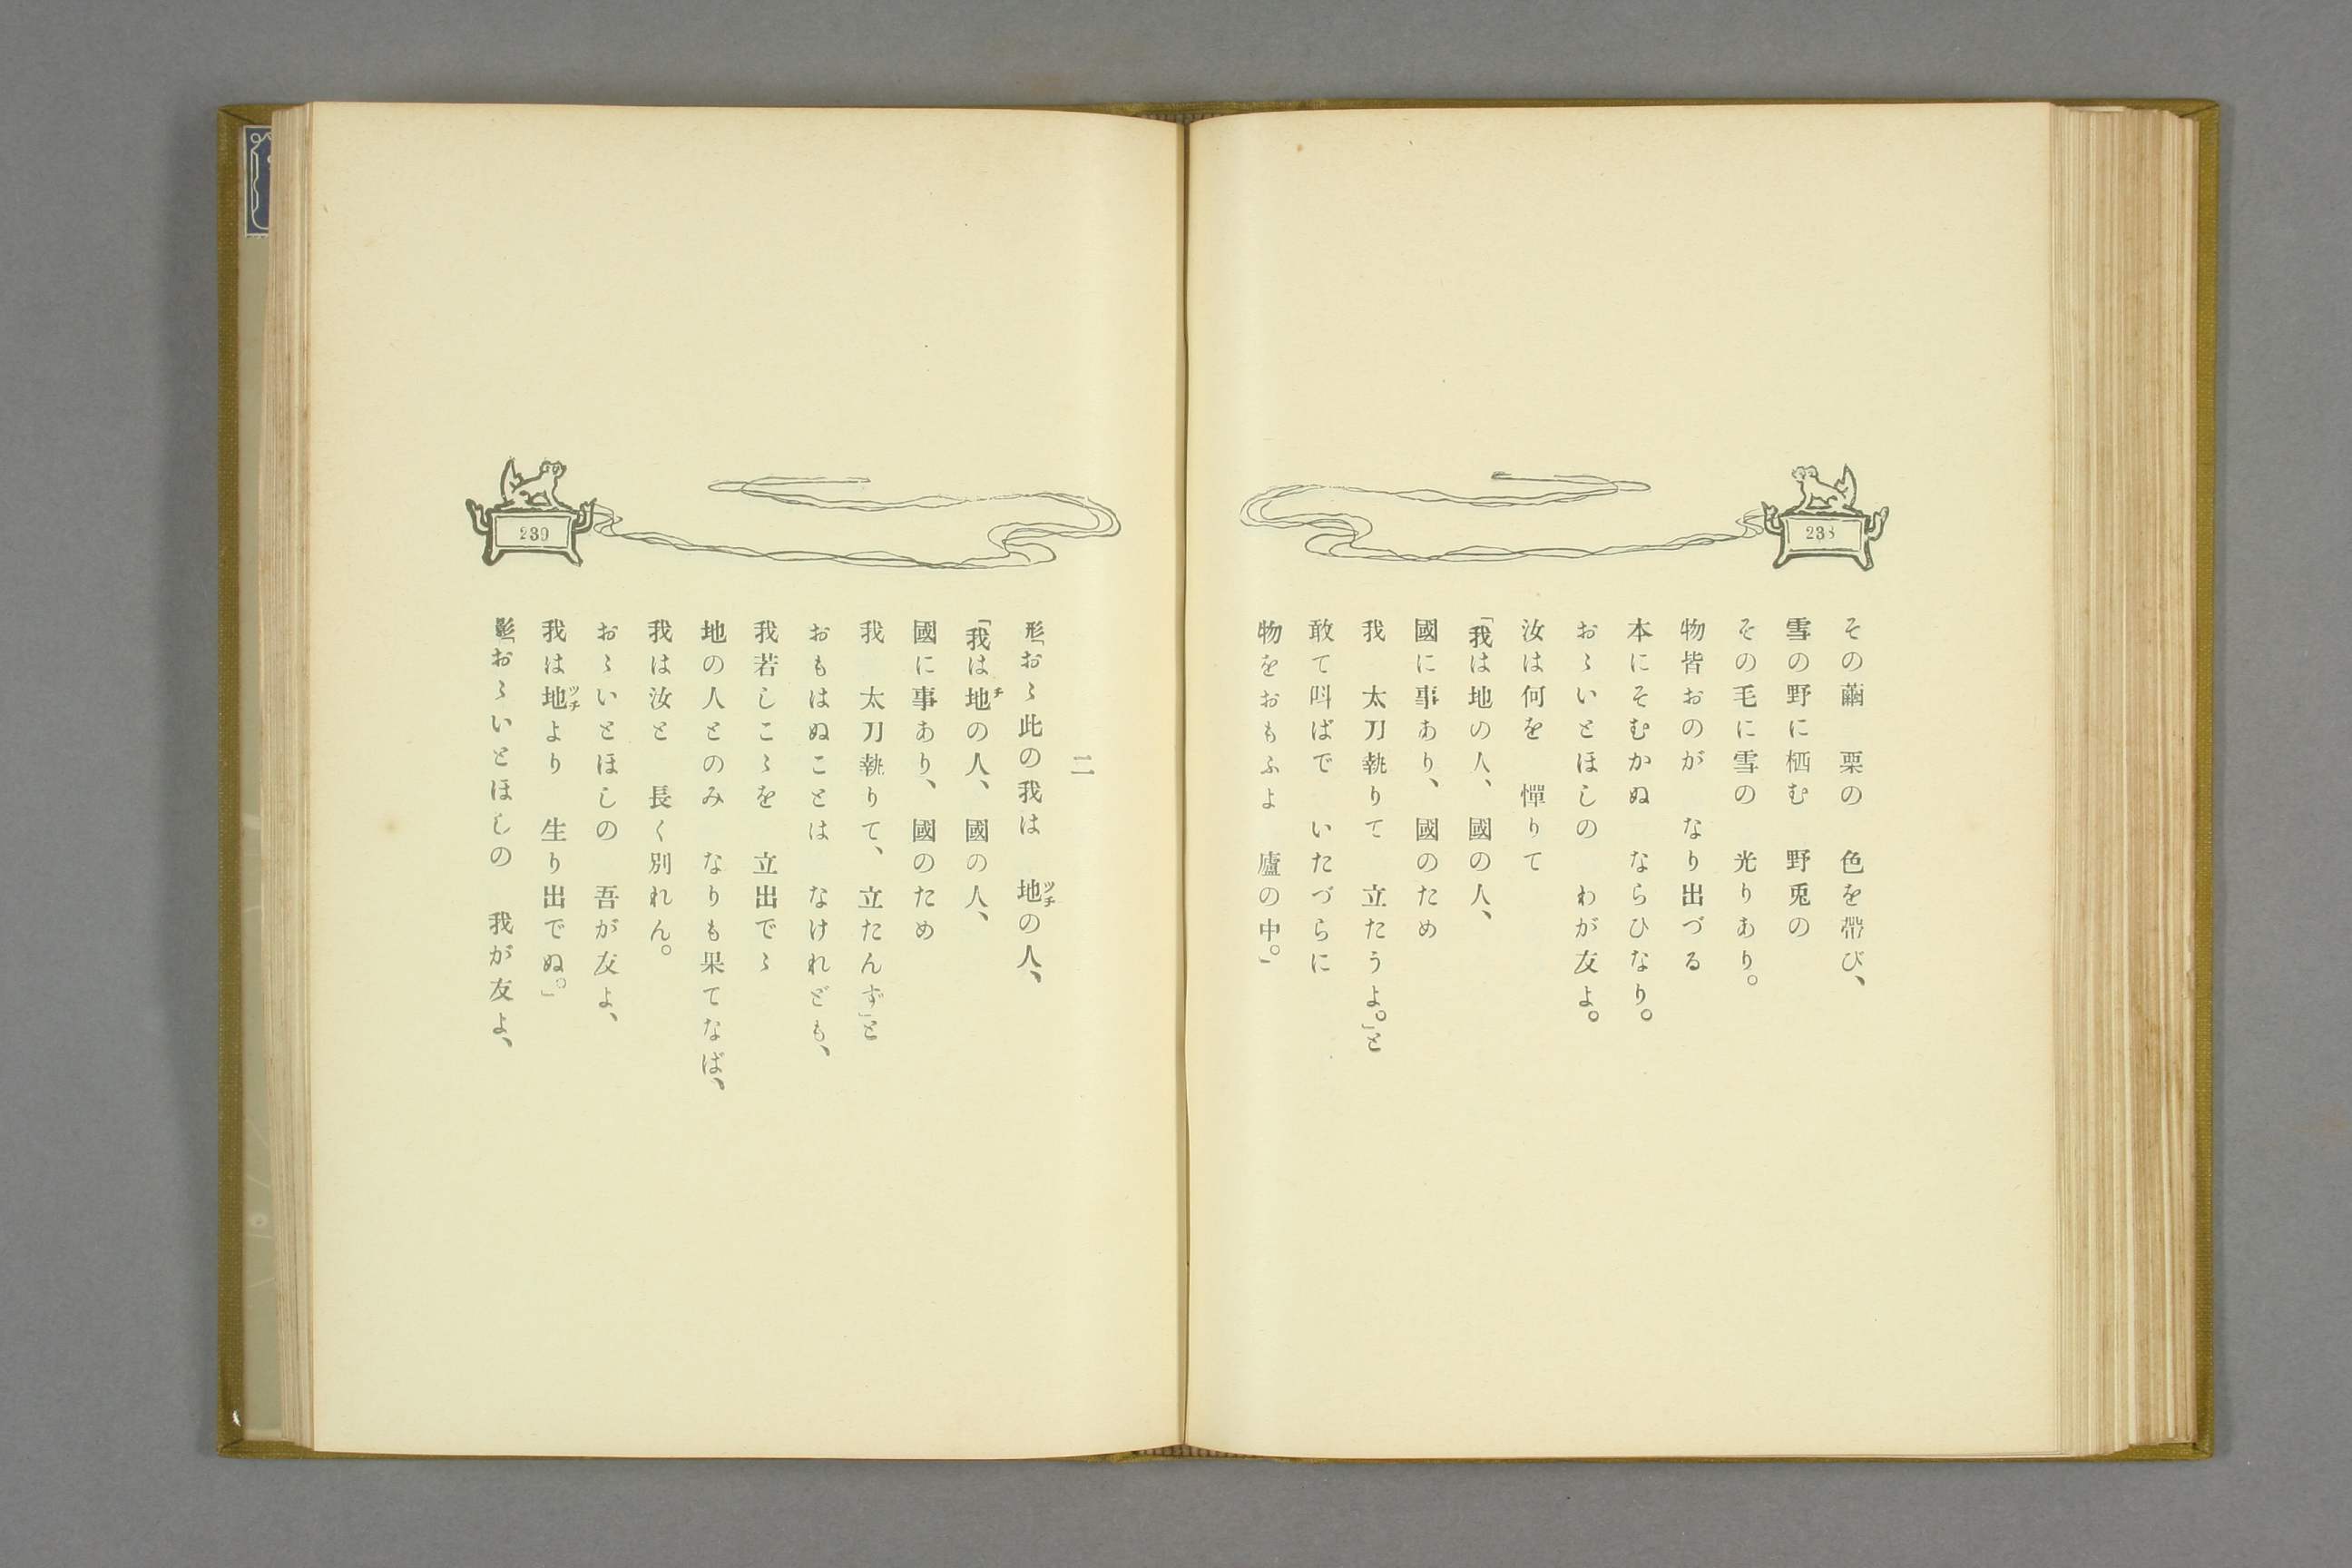 238
その繭　栗の　色を帶び、
雪の野に栖む　野兎の
その毛に雪の　光りあり。
物皆おのが　なり出づる
本にそむかぬ　ならひなり。
おゝいとほしの　わが友よ。
汝は何を　憚りて
「我は地の人、國の人、
國に事あり、國のため
我　太刀執りて　立たうよ。」と
敢て呌ばで　いたづらに
物をおもふよ　廬の中。」
239
二
形「おゝ此の我は　地ツチの人、
「我は地チの人、國の人、
國に事あり、國のため
我　太刀執りて、立たんず」と
おもはぬことは　なけれども、
我若しこゝを　立出でゝ
地の人とのみ　なりも果てなば、
我は汝と　長く別れん。
おゝいとほしの　吾が友よ、
我は地ツチより　生り出でぬ。」
影「おゝいとほしの　我が友よ、